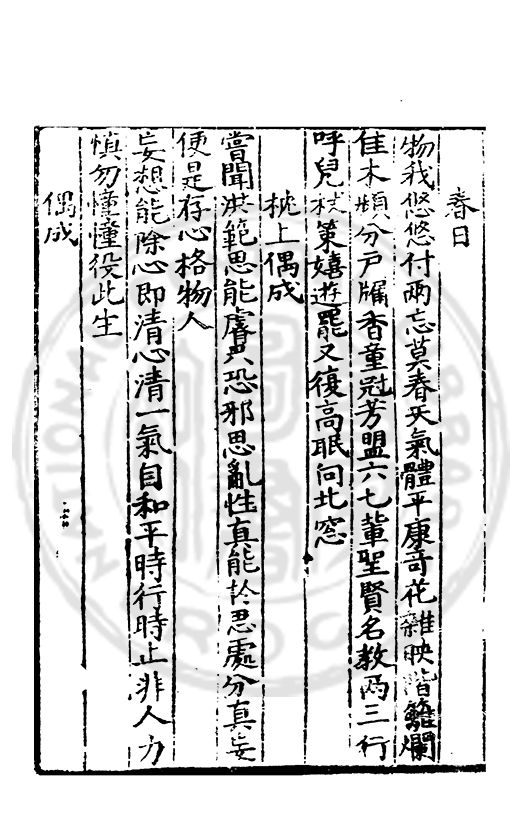 春日
物我悠悠付兩忘莫春天氣體平康奇花雜映階籬爛
佳木頻分戶牖香童冠芳盟六七輩聖賢名教兩三行
呼兒杖策嬉遊罷又復高眠向北窓
枕上偶成
嘗聞洪範思能睿只恐邪思亂性真能於思處分真妄
便是存心格物人
妄想能除心即清心清一氣自和平時行時止非人力
慎勿憧憧役此生
偶成